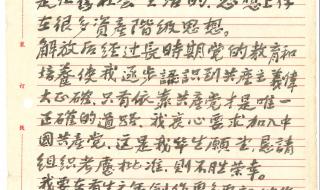 在很多資產階級思想。
是解放后经过長時期党的教育和
培養使我逐步認識到共產主義偉
大正確，只有依靠共產党才是唯一
正確的道路。我衷心要求加入中
國共產党，这是我毕生願望，懇請
組织考慮批准，則不胜荣幸。